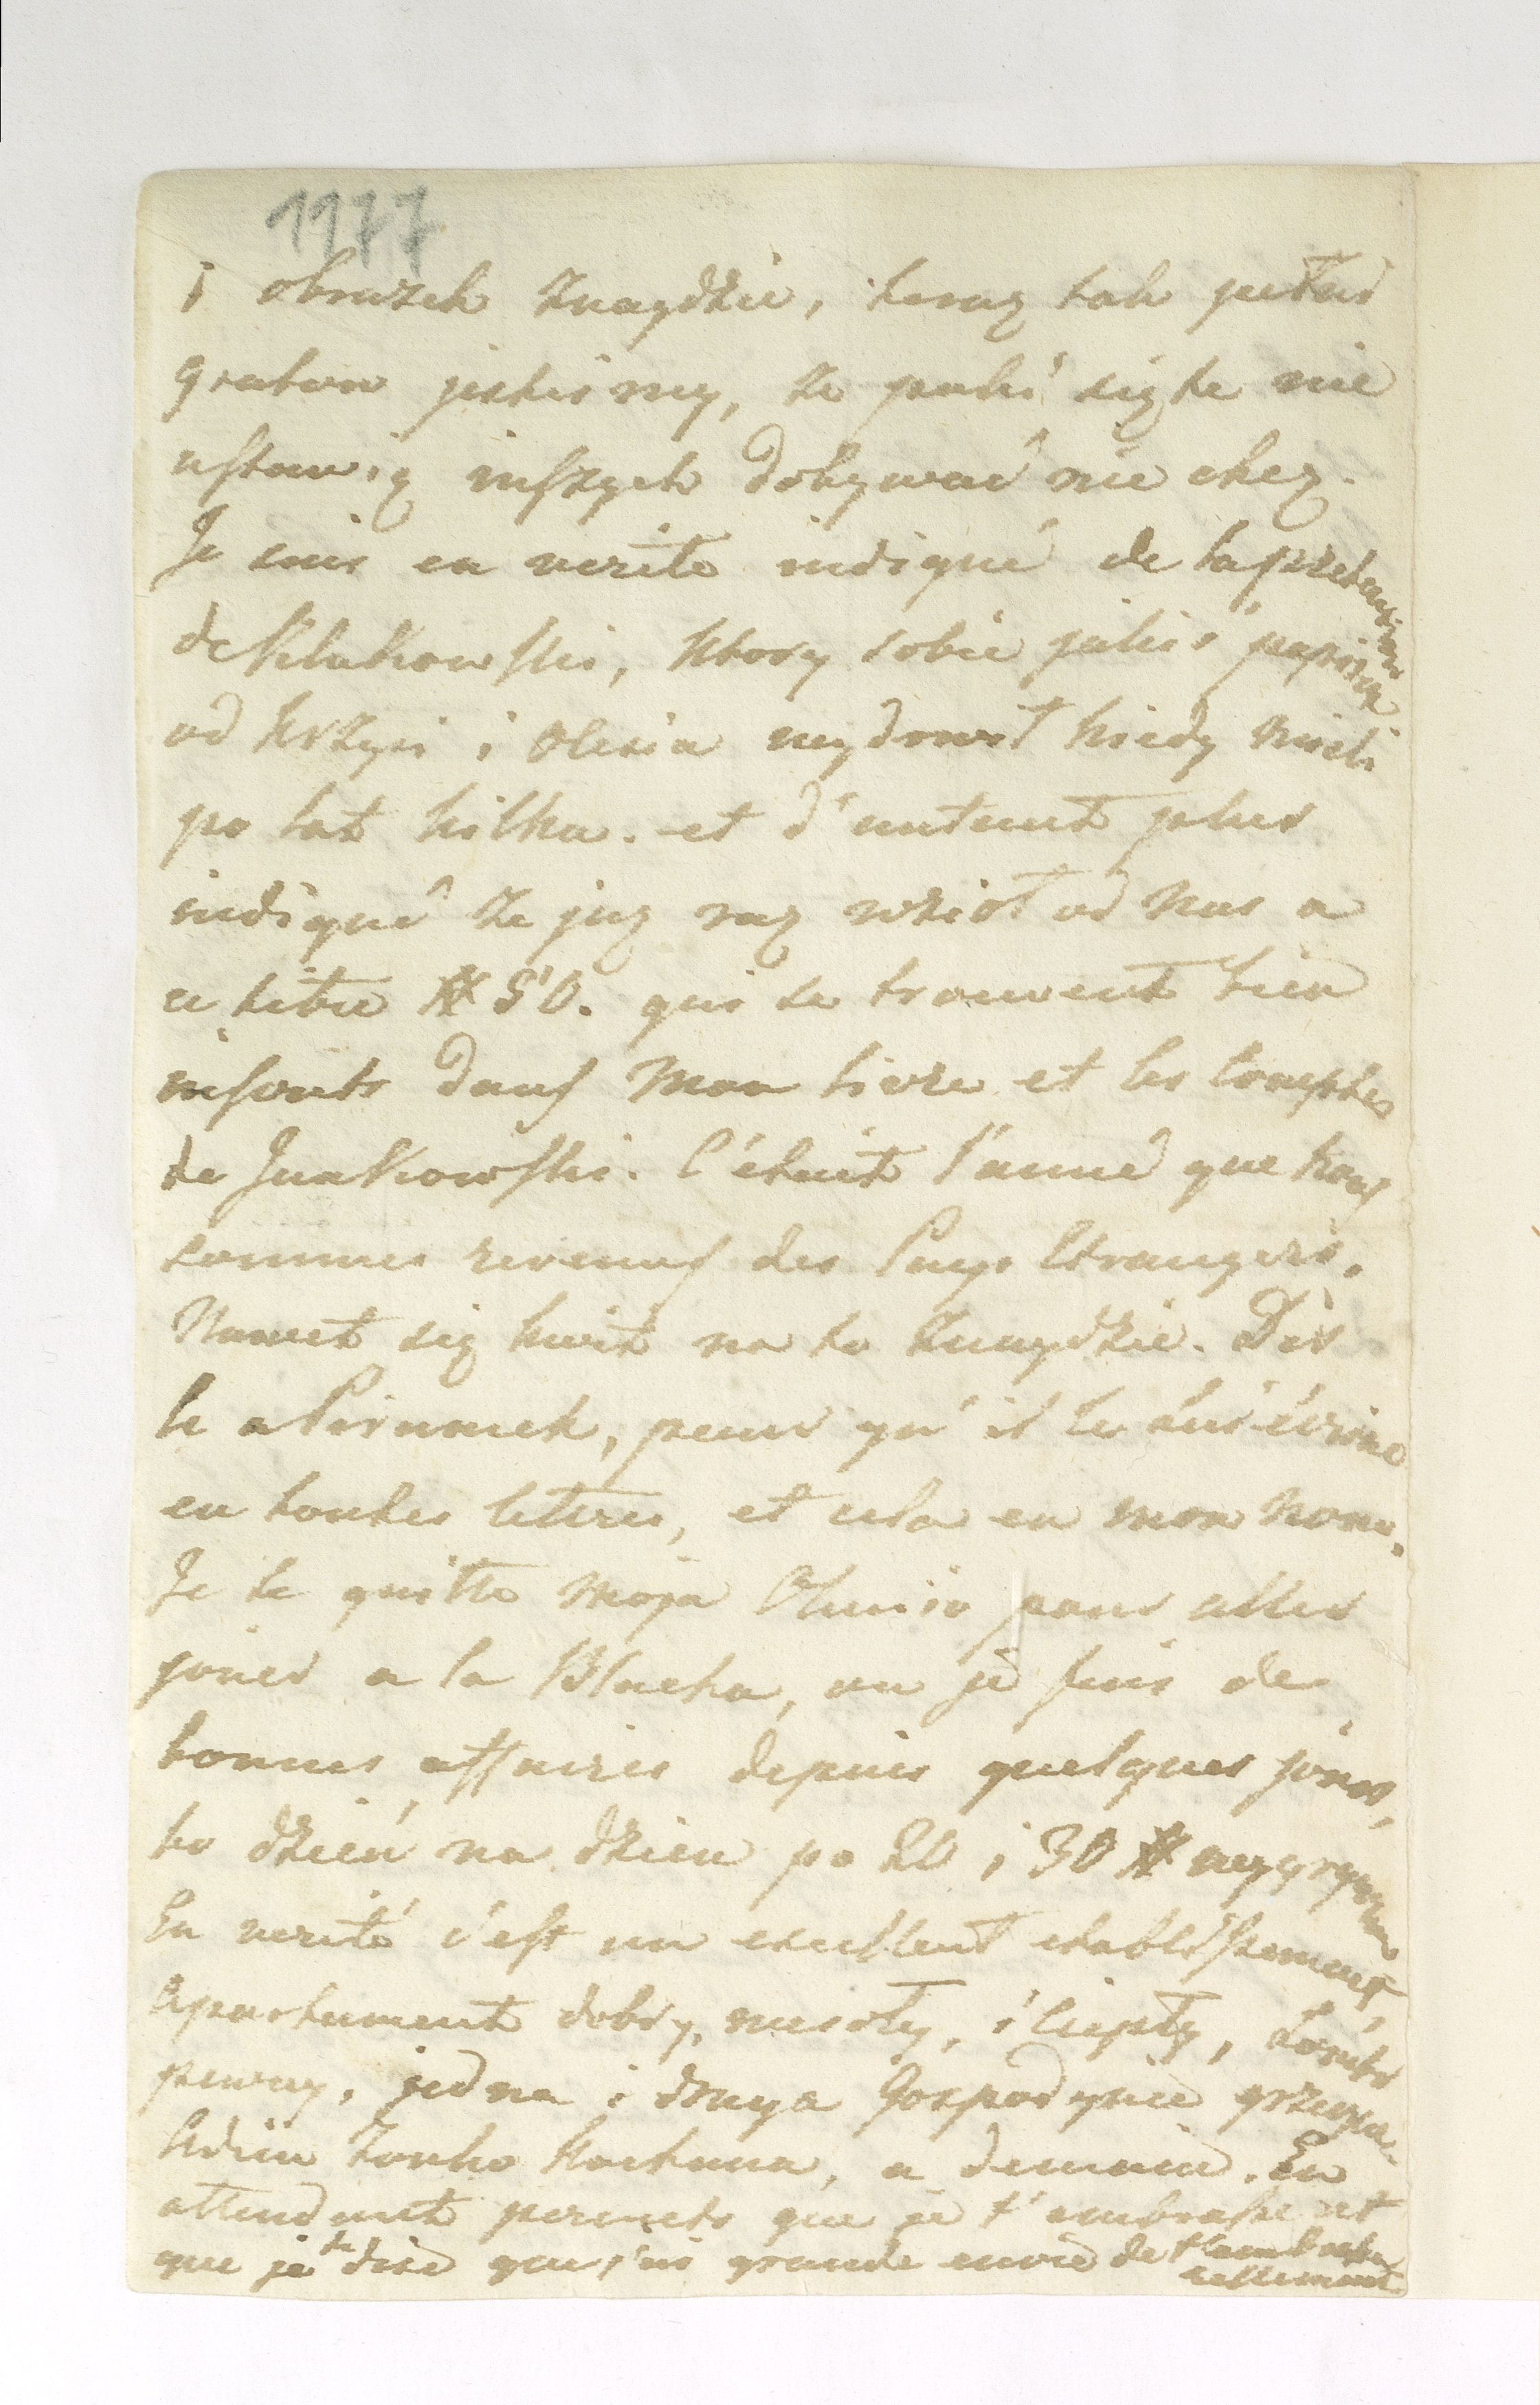 1977
i obrazek znaydzie, teraz tak pełno
gratow jestesmy, ze poki się te nie
ustawią inszych dobywać nie chcę.
Je suis en verité indigné de la pretension
de Klukowski, ktory sobie jakis papier
od Krzysi i Olesia wydrwił kiedy mieli
po lat kilka. et d'autant plus
indigné ze juz raz wzioł od nas a
ce titre # 50. qui se trouvent bien
inscrits dans mon livre et les comptes
de Junkowski. C'étoit l'année que nous
sommes revenus des Pays Etrangers.
Nawet się kwit na to znaydzie. Dis
le a Pirnonek, pour qu'il le lui écrive
en toutes lettres, et cela en mon nom.
Je te quitte moja Olunio pour aller
jouer a la Blacha, ou je fais de
bonnes affaires depuis quelques jours,
bo dzień na dzien po 20 i 30 # wygrywam
En verité c'est un excellent etablissement,
apartament dobry, wesoły, i ciepły,
pewny, jedna i druga Gospodynie grzeczne.
Adieu Zonko Kochana, a demain. En
attendant permets que je t'embrasse et
que je te dise que j'ai grande envie de t'embrasser
reellement.